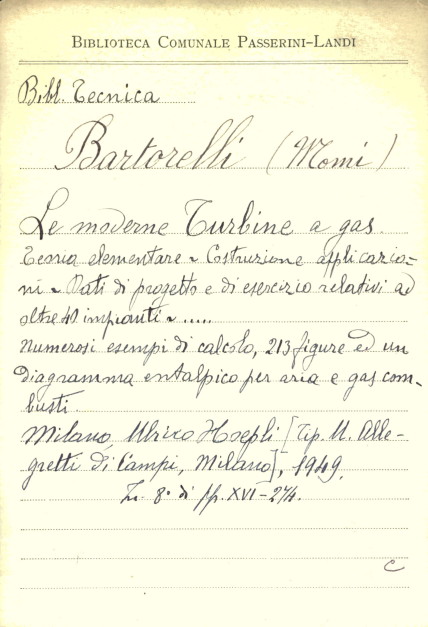 BIBLIOTECA COMUNALE PASSERINI-LANDI
Bibl. Tecnica
Bartorelli (Momi)
Le moderne Turbine a gas.
Teoria elementare ~ Costruzione applicazio=
ni ~ Dati di progetto e di esercizio relativi ad
oltre 40 impianti ~ .....
Numerosi esempi di calcolo, 213 figure ed un
diagramma entalpico per aria e gas com-
busti.
Milano, Ulrico Hoepli [Tip. U. Alle-
gretti di Campi, Milano], 1949.
In 8° di pp. XVI-274.
C